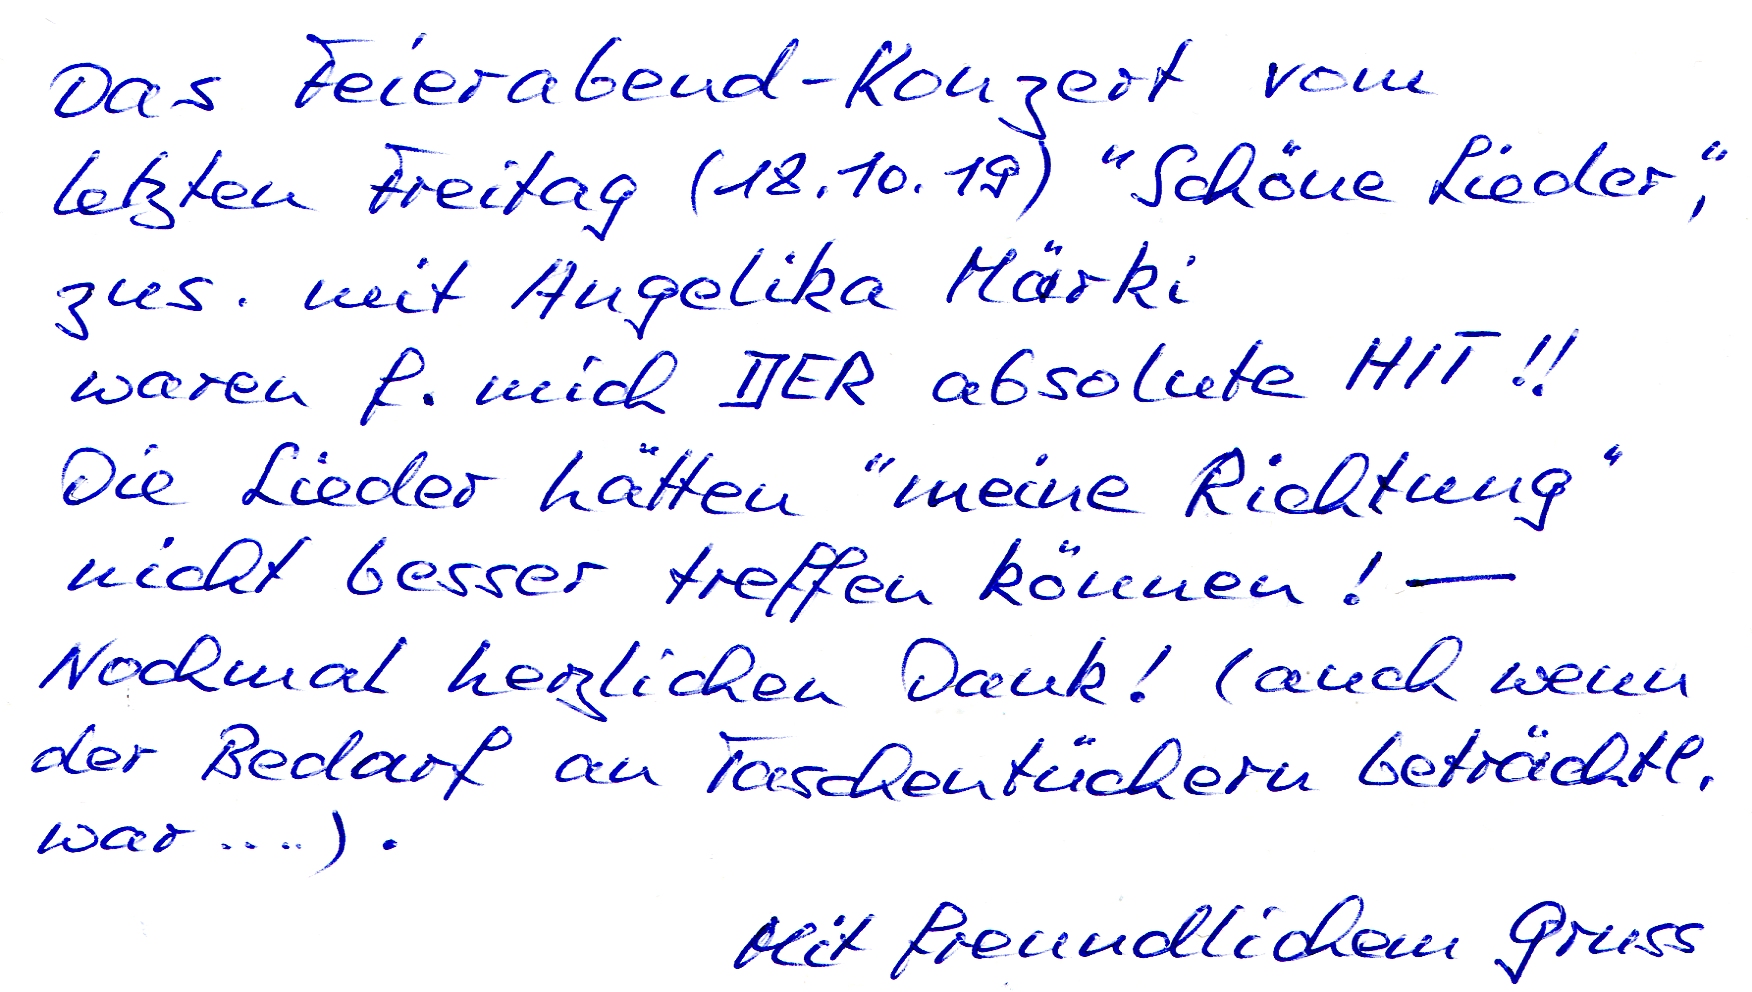 Das Feierabend-Konzert vom
letzten Freitag (18.10.19) "Schöne Lieder",
zus. mit Angelika Märki
waren f. mich DER absolute HIT!!
Die Lieder hätten "meine Richtung"
nicht besser treffen können! —
Nochmal herzlichen Dank! (auch wenn
der Bedarf an Taschentüchern beträchtl.
war ....).
Mit freundlichem Gruss